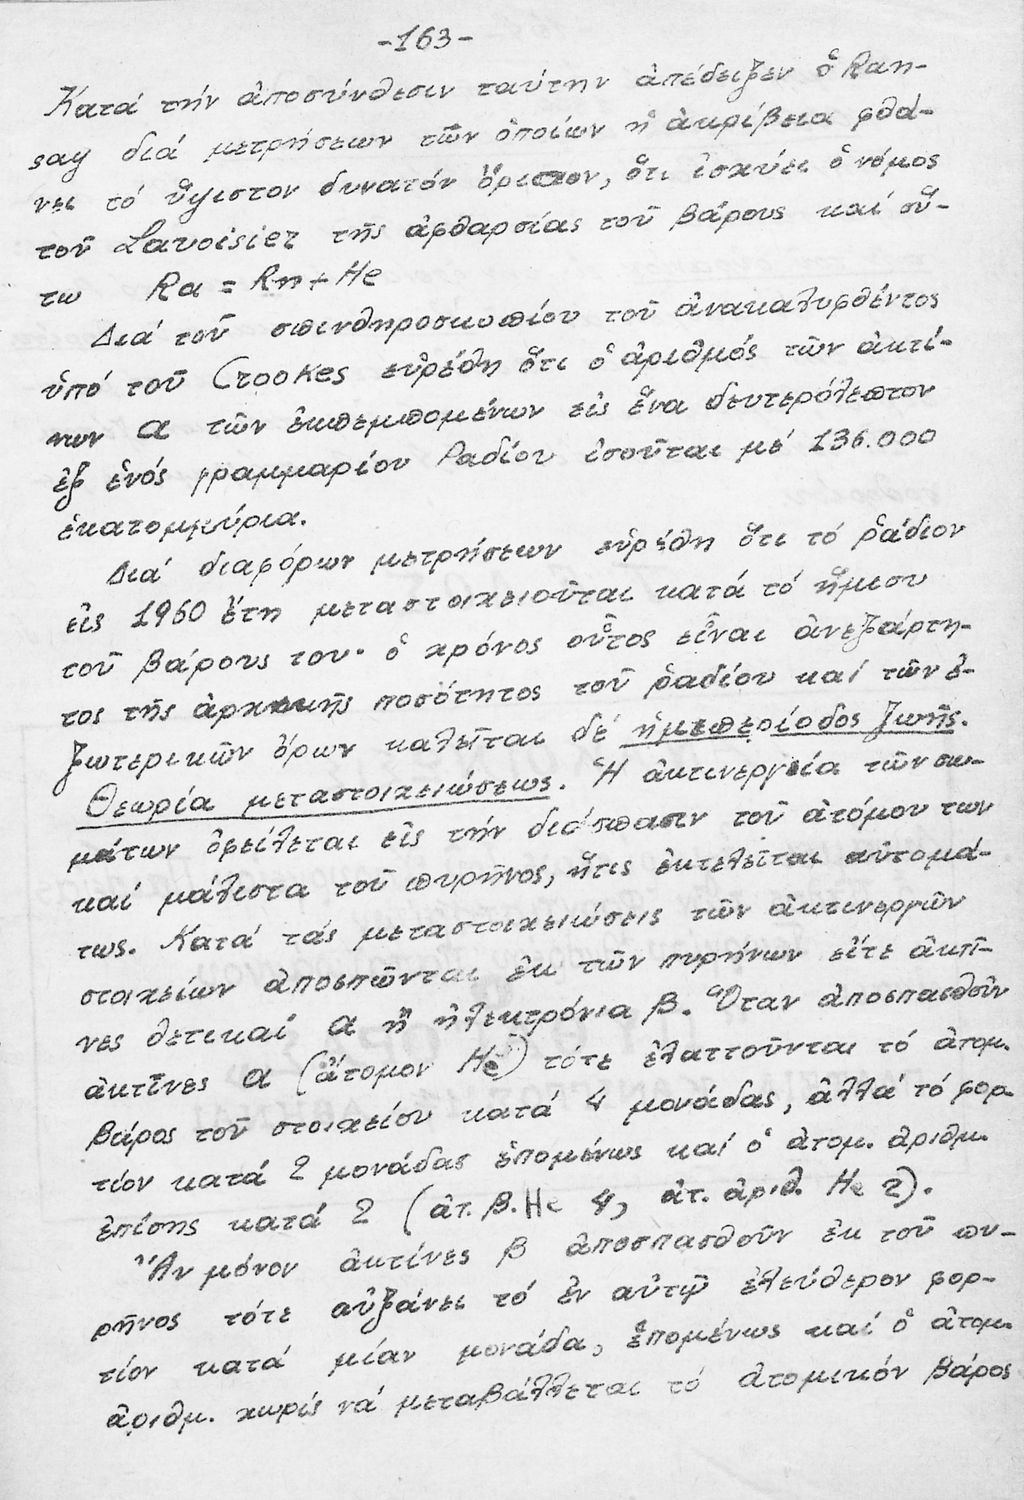 -163-
Κατά τήν ἀποσύνθεσιν ταύτην ἀπέδειξεν ὁ Ran-
say διά μετρήσεων τῶν ὁποίων ἡ ἀκρίβεια φθά-
νει τό ὕψιστον δυνατόν ὅριον, ὅτι ἰσχύει ὁ νόμος
τοῦ Lavoisier τῆς ἀφθαρσίας τοῦ βάρους καί οὕ-
τω Ra = Rn + He
Διά τοῦ σπινθηροσκοπίου τοῦ ἀνακαλυφθέντος
ὑπό τοῦ Crookes εὑρέθη ὅτι ὁ ἀριθμός τῶν ἀκτί-
νων α τῶν ἐκπεμπομένων εἰς ἕνα δευτερόλεπτον
ἐξ ἑνός γραμμαρίου Ραδίου ἰσοῦται μέ 136.000
ἑκατομμύρια.
Διά διαφόρων μετρήσεων εὑρέθη ὅτι τό ῥάδιον
εἰς 1960 ἔτη μεταστοιχειοῦται κατά τό ἥμισυ
τοῦ βάρους του· ὁ χρόνος οὗτος εἶναι ἀνεξάρτη-
τος τῆς ἀρχικῆς ποσότητος τοῦ ῥαδίου καί τῶν ἐ-
ξωτερικῶν ὅρων καλεῖται δέ ἡμιπερίοδος ζωῆς.
Θεωρία μεταστοιχειώσεως. Ἡ ἀκτινεργεία τῶν σω-
μάτων ὀφείλεται εἰς τήν διάσπασιν τοῦ ἀτόμου των
καί μάλιστα τοῦ πυρῆνος, ἥτις ἐκτελεῖται αὐτομά-
τως. Κατά τάς μεταστοιχειώσεις τῶν ἀκτινεργῶν
στοιχείων ἀποσπῶνται ἐκ τῶν πυρήνων εἴτε ἀκτῖ-
νες θετικαί α ἤ ἠλεκτρόνια β. Ὅταν ἀποσπασθοῦν
ἀκτῖνες α (ἄτομον He) τότε ἐλαττοῦνται τό ἀτομ.
βάρος τοῦ στοιχείου κατά 4 μονάδας, ἀλλά τό φορ-
τίον κατά 2 μονάδας ἑπομένως καί ὁ ἀτομ. ἀριθμ.
ἐπίσης κατά 2 (ἀτ. β. He 4, ἀτ. ἀριθ. He 2).
Ἄν μόνον ἀκτίνες β ἀποσπασθοῦν ἐκ τοῦ πυ-
ρῆνος τότε αὐξάνει τό ἐν αὐτῷ ἐλεύθερον φορ-
τίον κατά μίαν μονάδα, ἑπομένως καί ὁ ἀτομ.
ἀριθμ. χωρίς νά μεταβάλλεται τό ἀτομικόν βάρος